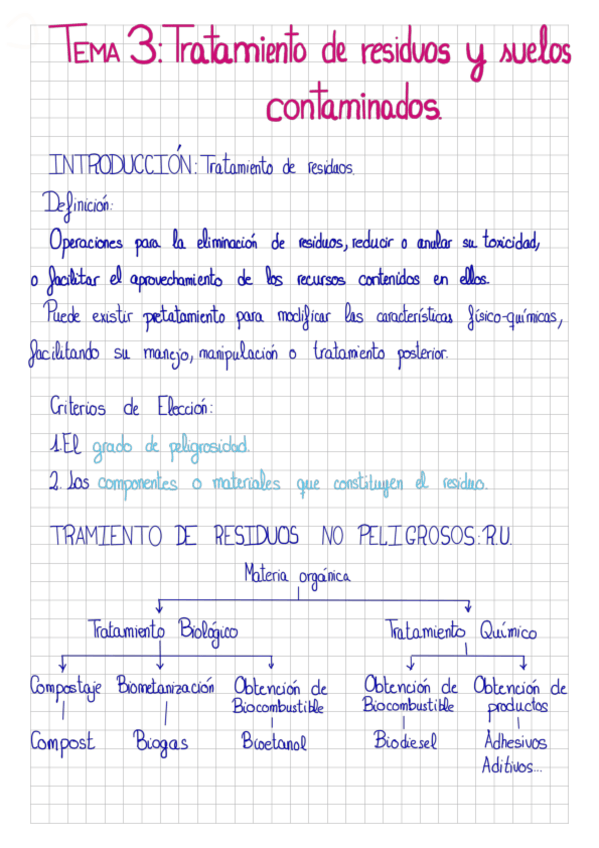 TEMA 3: Tratamiento de residuos y suelos
contaminados.
INTRODUCCIÓN: Tratamiento de residuos.
Definición:
Operaciones para la eliminación de residuos, reducir o anular su toxicidad,
o facilitar el aprovechamiento de los recursos contenidos en ellos.
Puede existir pretatamiento para modificar las características físico-químicas,
facilitando su manejo, manipulación o tratamiento posterior.
Criterios de Elección:
1. El grado de peligrosidad.
2. Los componentes o materiales que constituyen el residuo.
TRAMIENTO DE RESIDUOS NO PELIGROSOS: R.U.
Materia orgánica
Tratamiento Biológico Tratamiento Químico
Compostaje Biometanización Obtención de Obtención de Obtención de
Biocombustible Biocombustible productos
Compost Biogas Bioetanol Biodiesel Adhesivos
Aditivos...